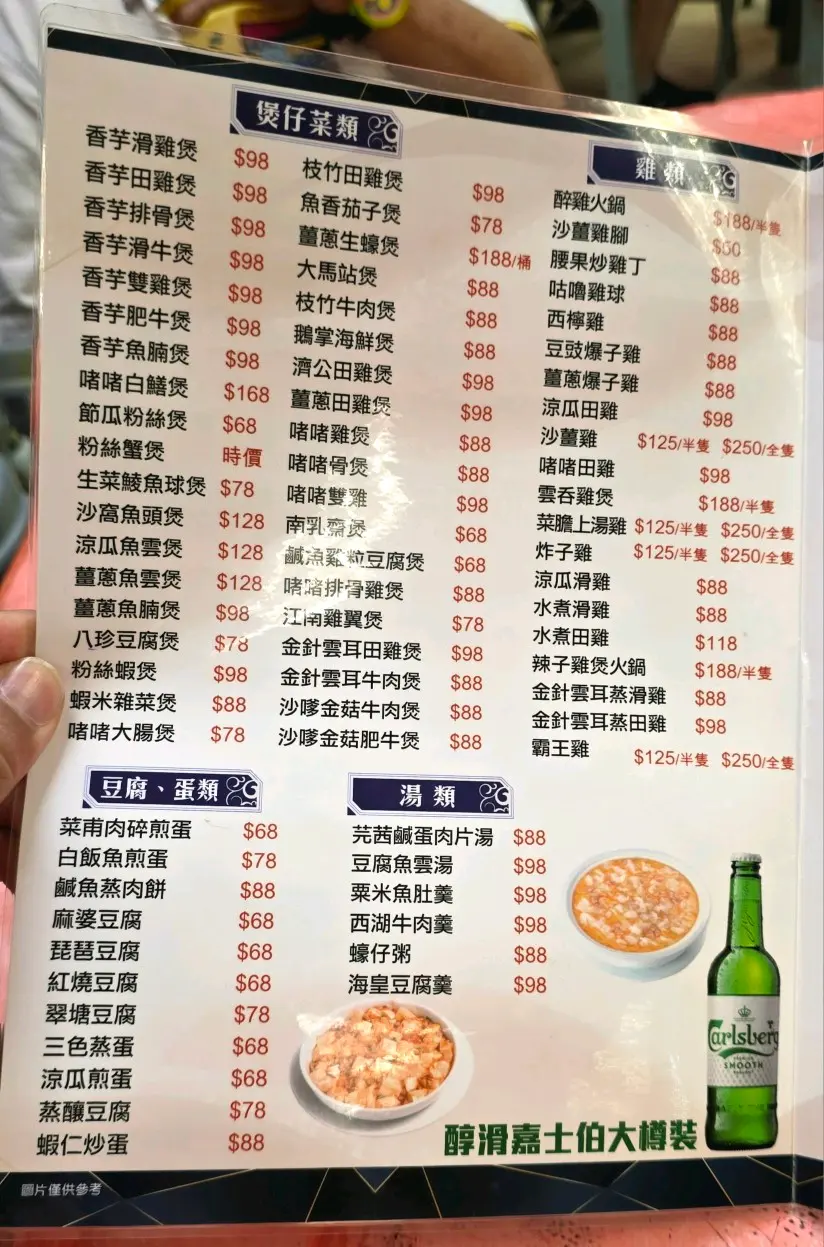 煲仔菜類
香芋滑雞煲 $98
香芋田雞煲 $98
香芋排骨煲 $98
香芋滑牛煲 $98
香芋雙雞煲 $98
香芋肥牛煲 $98
香芋魚腩煲 $98
啫啫白鱔煲 $168
節瓜粉絲煲 $68
粉絲蟹煲 時價
生菜鯪魚球煲 $78
沙窩魚頭煲 $128
涼瓜魚雲煲 $128
薑蔥魚雲煲 $128
薑蔥魚腩煲 $98
八珍豆腐煲 $78
粉絲蝦煲 $98
蝦米雜菜煲 $88
啫啫大腸煲 $78
枝竹田雞煲 $98
魚香茄子煲 $78
薑蔥生蠔煲 $188/桶
大馬站煲 $88
枝竹牛肉煲 $88
鵝掌海鮮煲 $88
濟公田雞煲 $98
薑蔥田雞煲 $98
啫啫雞煲 $88
啫啫骨煲 $88
啫啫雙雞 $98
南乳齋煲 $68
鹹魚雞粒豆腐煲 $68
啫啫排骨雞煲 $88
江南雞翼煲 $78
金針雲耳田雞煲 $98
金針雲耳牛肉煲 $88
沙嗲金菇牛肉煲 $88
沙嗲金菇肥牛煲 $88
雞類
醉雞火鍋 $188/半隻
沙薑雞腳 $60
腰果炒雞丁 $88
咕嚕雞球 $88
西檸雞 $88
豆豉爆子雞 $88
薑蔥爆子雞 $88
涼瓜田雞 $98
沙薑雞 $125/半隻 $250/全隻
啫啫田雞 $98
雲吞雞煲 $188/半隻
菜膽上湯雞 $125/半隻 $250/全隻
炸子雞 $125/半隻 $250/全隻
涼瓜滑雞 $88
水煮滑雞 $88
水煮田雞 $118
辣子雞煲火鍋 $188/半隻
金針雲耳蒸滑雞 $88
金針雲耳蒸田雞 $98
霸王雞 $125/半隻 $250/全隻
豆腐、蛋類
菜甫肉碎煎蛋 $68
白飯魚煎蛋 $78
鹹魚蒸肉餅 $88
麻婆豆腐 $68
琵琶豆腐 $68
紅燒豆腐 $68
翠塘豆腐 $78
三色蒸蛋 $68
涼瓜煎蛋 $68
蒸釀豆腐 $78
蝦仁炒蛋 $88
湯類
芫茜鹹蛋肉片湯 $88
豆腐魚雲湯 $98
粟米魚肚羹 $98
西湖牛肉羹 $98
蠔仔粥 $88
海皇豆腐羹 $98
Carlsberg
SMOOTH
醇滑嘉士伯大樽裝
圖片僅供參考